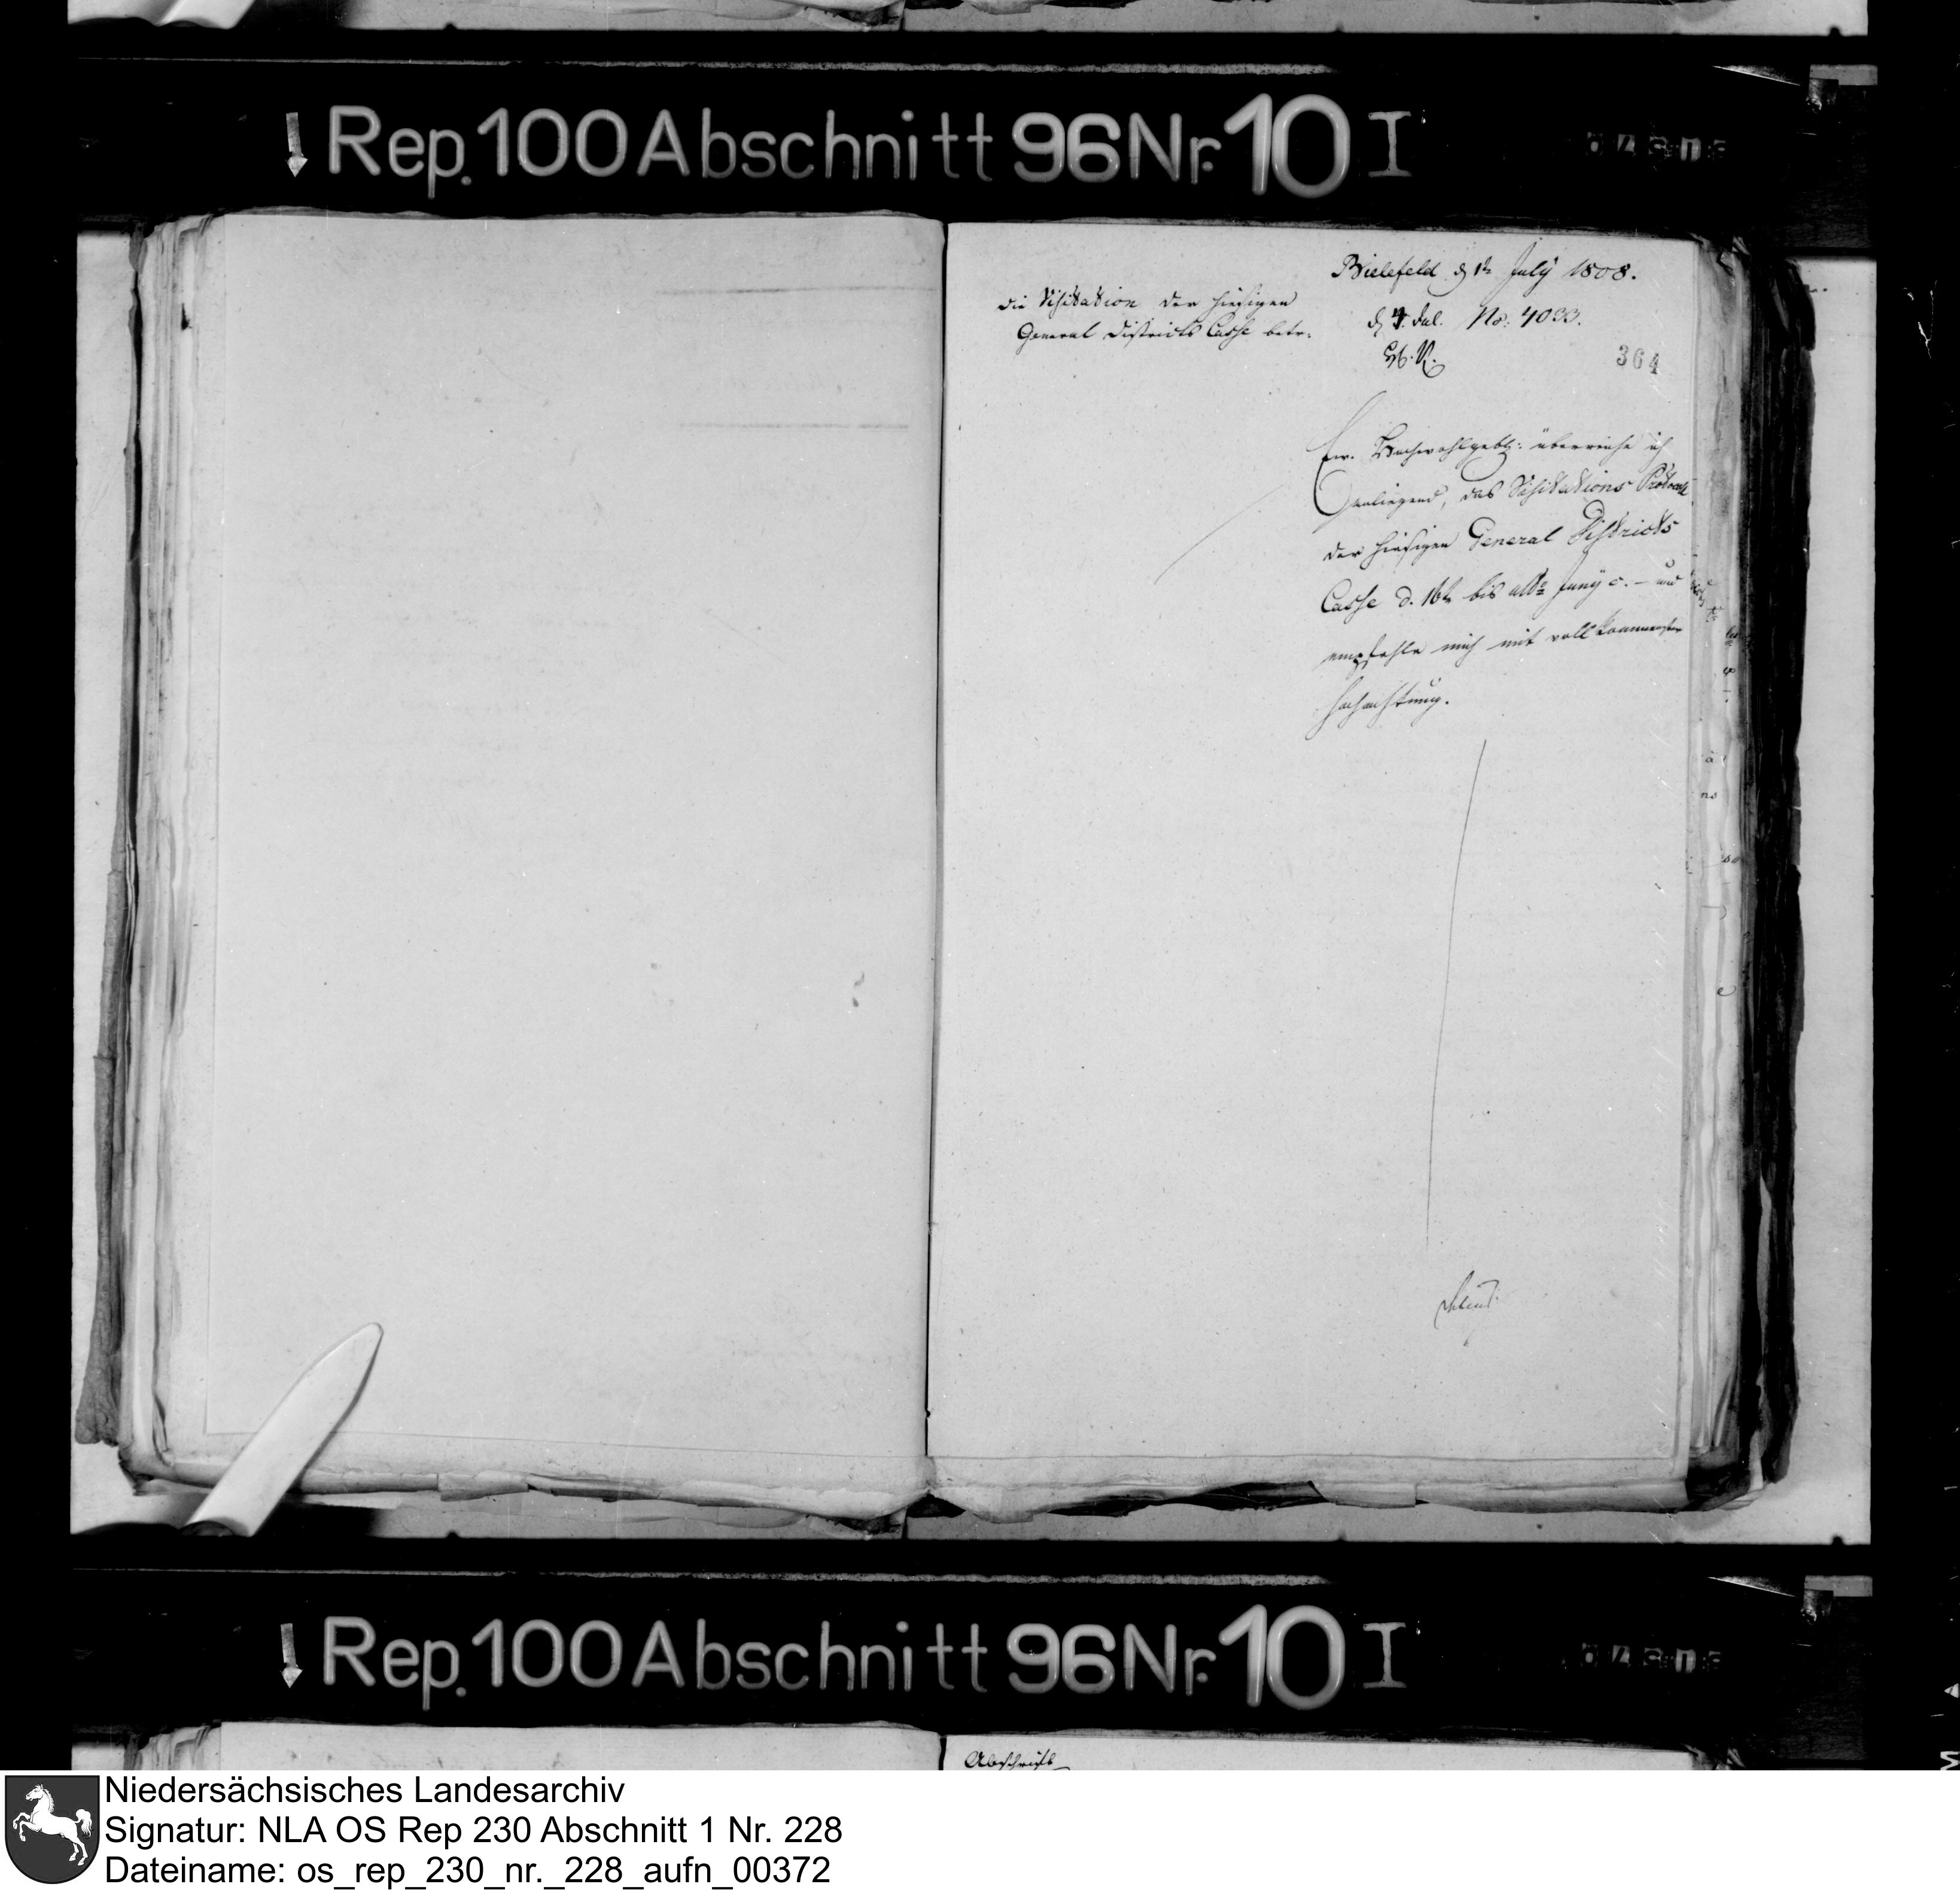 Rep. 100 Abschnitt 96 Nr. 10 I
Bielefeld d 1t July 1808.
die Visitation der hiesigen
General Districts Casse betr.
d 4. Jul. No: 4033.
364
Ew. Hochwohlgeb: überreiche ich
anliegend, das Visitations Protocoll
der hiesigen General Districts
Casse d. 16t bis ult. Juny c. – und
empfehle mich mit vollkommenster
Hochachtung.
Rep. 100 Abschnitt 96 Nr. 10 I
Abschrift
Niedersächsisches Landesarchiv
Signatur: NLA OS Rep 230 Abschnitt 1 Nr. 228
Dateiname: os_rep_230_nr._228_aufn_00372